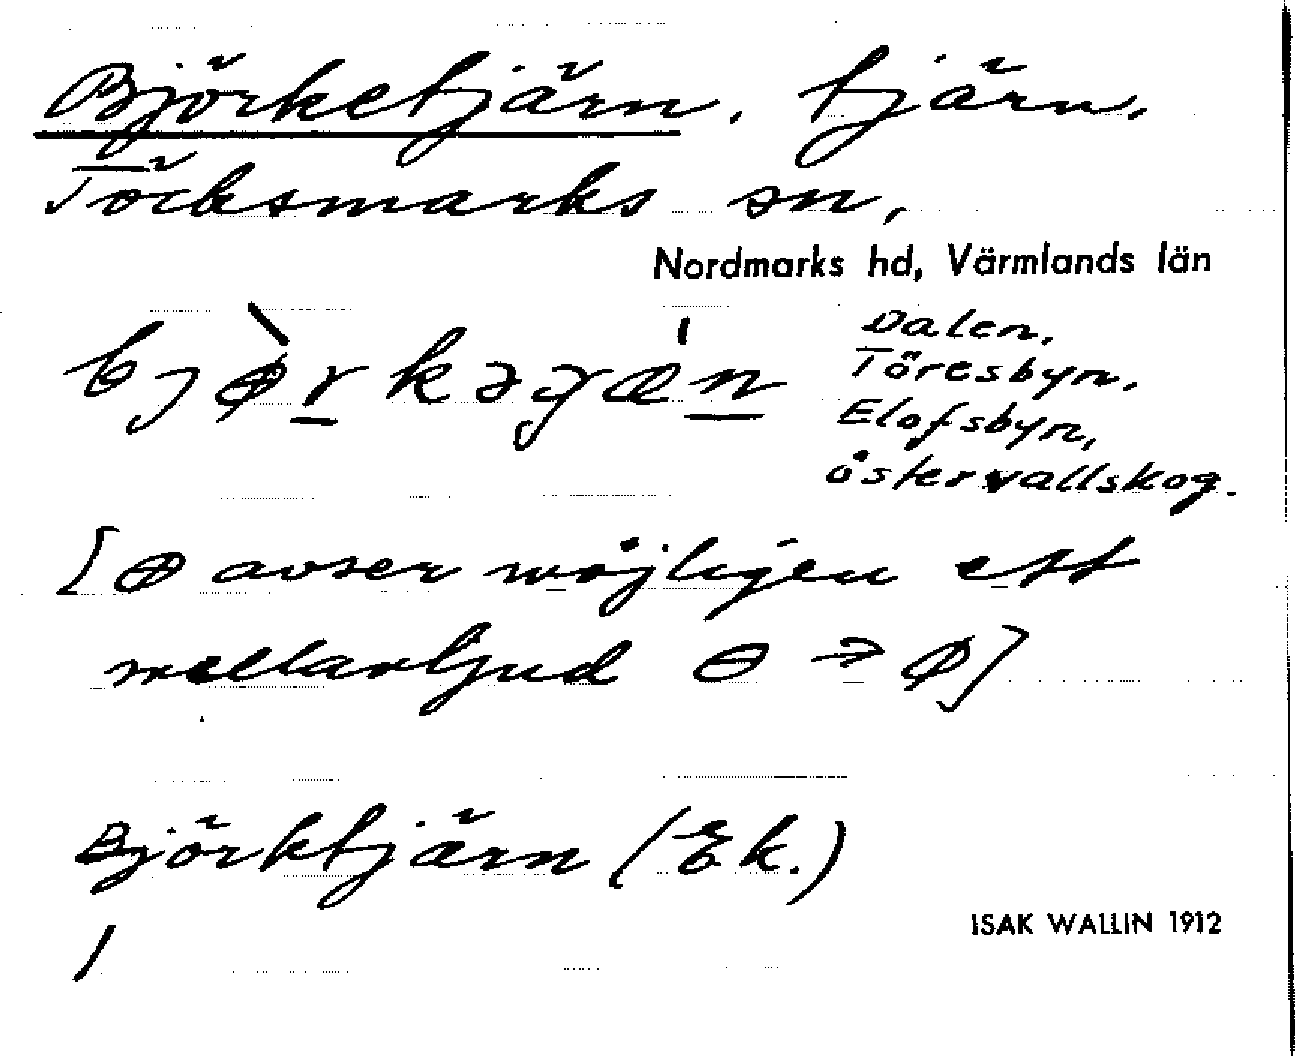 Björketjärn, tjärn,
Töcksmarks sn,
Nordmarks hd, Värmlands län
Dalen,
Töresbyn,
Elofsbyn,
östervallskog.
[ꝋ avser möjligen ett
mellanljud ɵ → ø]
Björktjärn (Ek.)
/
ISAK WALLIN 1912